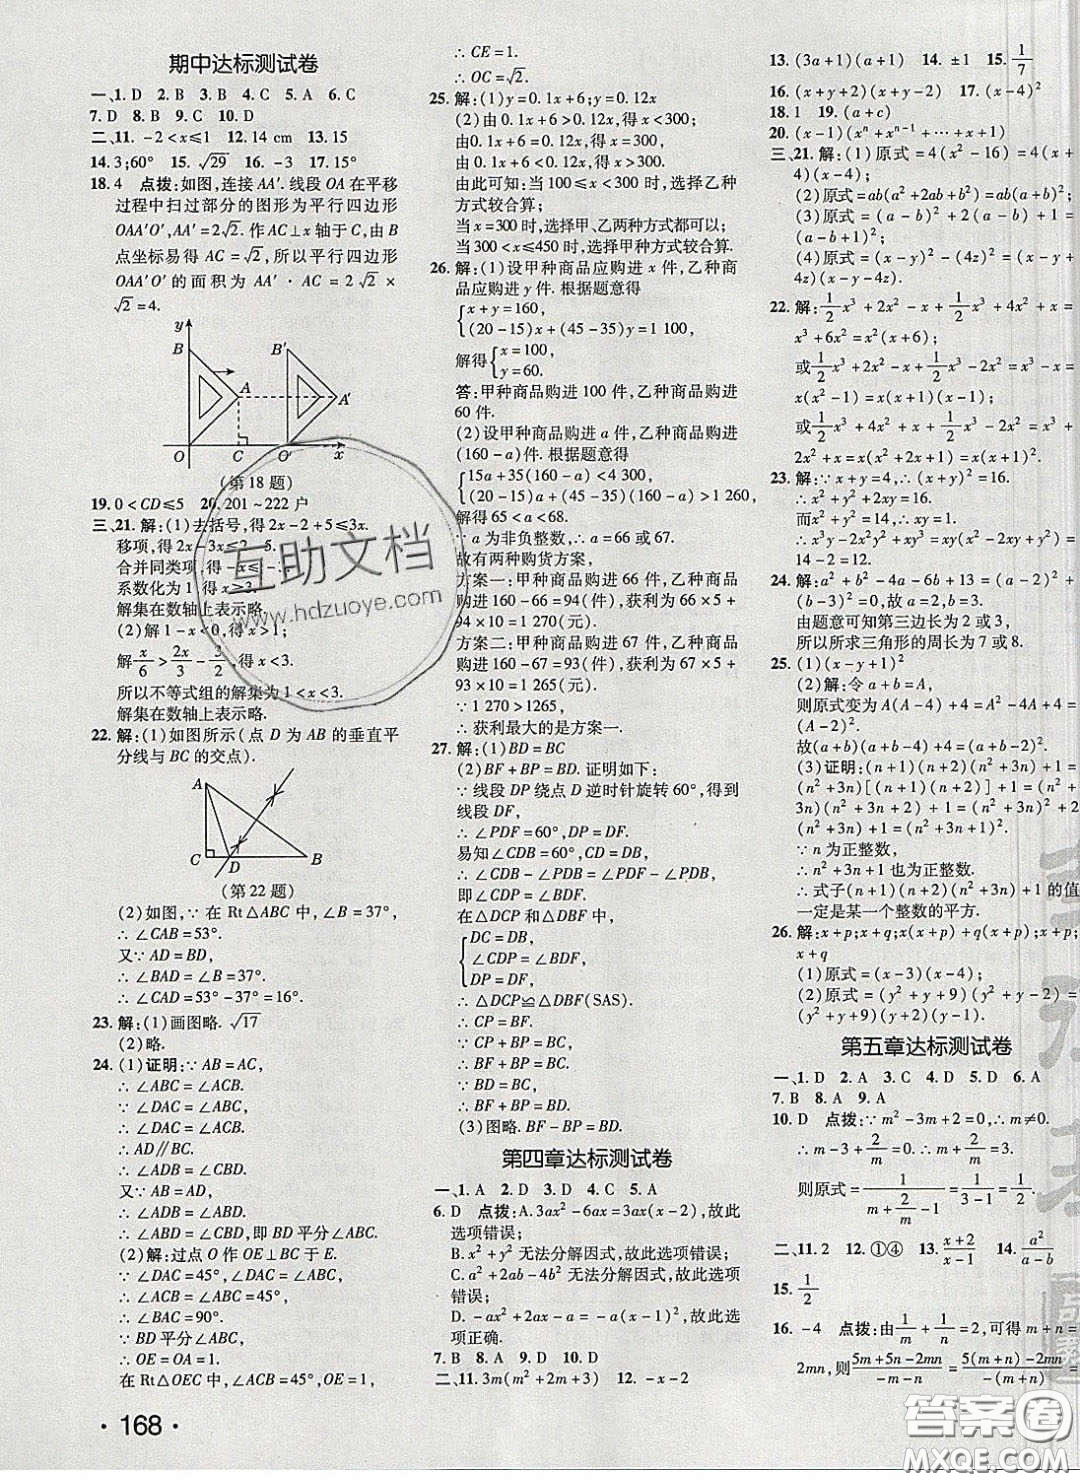 期中达标测试卷
一、1. D 2. B 3. B 4. C 5. A 6. C
7. D 8. B 9. C 10. D
二、11. －2＜x≤1 12. 14 cm 13. 15
14. 3;60° 15. √29 16. －3 17. 15°
18. 4 点拨:如图,连接 AA′. 线段 OA 在平移
过程中扫过部分的图形为平行四边形
OAA′O′, AA′＝2√2. 作 AC⊥x 轴于 C,由 B
点坐标易得 AC＝√2,所以平行四边形
OAA′O′ 的面积为 AA′·AC＝2√2×
√2＝4.
y
B B′
A A′
O C O′ x
(第 18 题)
19. 0＜CD≤5 20. 201～222 户
三、21. 解:(1)去括号,得 2x－2＋5≤3x.
移项,得 2x－3x≤2－5.
合并同类项,得－x≤－3.
系数化为 1,得 x≥3.
解集在数轴上表示略.
(2)解 1－x＜0,得 x＞1;
解 x/6＞2x/3－3/2,得 x＜3.
所以不等式组的解集为 1＜x＜3.
解集在数轴上表示略.
22. 解:(1)如图所示(点 D 为 AB 的垂直平
分线与 BC 的交点).
A
C D B
(第 22 题)
(2)如图,∵在 Rt△ABC 中,∠B＝37°,
∴∠CAB＝53°.
又∵AD＝BD,
∴∠BAD＝∠B＝37°.
∴∠CAD＝53°－37°＝16°.
23. 解:(1)画图略. √17
(2)略.
24. (1)证明:∵AB＝AC,
∴∠ABC＝∠ACB.
∵∠DAC＝∠ABC,
∴∠DAC＝∠ACB.
∴AD∥BC.
∴∠ADB＝∠CBD.
又∵AB＝AD,
∴∠ADB＝∠ABD.
∴∠ABD＝∠CBD,即 BD 平分∠ABC.
(2)解:过点 O 作 OE⊥BC 于 E.
∵∠DAC＝45°,∠DAC＝∠ABC,
∴∠ABC＝∠ACB＝45°.
∴∠BAC＝90°.
∵BD 平分∠ABC,
∴OE＝OA＝1.
在 Rt△OEC 中,∠ACB＝45°,OE＝1,
· 168 ·
∴CE＝1.
∴OC＝√2.
25. 解:(1)y＝0.1x＋6;y＝0.12x
(2)由 0.1x＋6＞0.12x,得 x＜300;
由0.1x＋6＝0.12x,得 x＝300;
由 0.1x＋6＜0.12x,得 x＞300.
由此可知:当 100≤x＜300 时,选择乙种
方式较合算;
当 x＝300 时,选择甲、乙两种方式都可以;
当 300＜x≤450 时,选择甲种方式较合算.
26. 解:(1)设甲种商品应购进 x 件,乙种商
品应购进 y 件. 根据题意得
{x＋y＝160,
(20－15)x＋(45－35)y＝1 100.
解得{x＝100,
y＝60.
答:甲种商品购进 100 件,乙种商品购进
60 件.
(2)设甲种商品购进 a 件,乙种商品购进
(160－a)件. 根据题意得
{15a＋35(160－a)＜4 300,
(20－15)a＋(45－35)(160－a)＞1 260,
解得 65＜a＜68.
∵a 为非负整数,∴a＝66 或 67.
故有两种购货方案,
方案一:甲种商品购进 66 件,乙种商品
购进 160－66＝94(件),获利为 66×5＋
94×10＝1 270(元).
方案二:甲种商品购进 67 件,乙种商品
购进 160－67＝93(件),获利为 67×5＋
93×10＝1 265(元).
∵1 270＞1 265,
∴获利最大的是方案一.
27. 解:(1)BD＝BC
(2)BF＋BP＝BD. 证明如下:
∵线段 DP 绕点 D 逆时针旋转 60°,得到
线段 DF,
∴∠PDF＝60°,DP＝DF.
易知∠CDB＝60°,
∴∠CDB－∠PDB＝∠PDF－∠PDB,
即∠CDP＝∠BDF.
在△DCP 和△DBF 中,
{DC＝DB,
∠CDP＝∠BDF,
DP＝DF,
∴△DCP≌△DBF(SAS).
∴CP＝BF.
∵CP＝BC－BP,
∴BF＋BP＝BC.
∵BD＝BC,
∴BF＋BP＝BD.
(3)图略. BF－BP＝BD.
第四章达标测试卷
一、1. A 2. D 3. D 4. C 5. A
6. D 点拨:A. 3ax²－6ax＝3ax(x－2),故此
选项错误;
B. x²＋y² 无法分解因式,故此选项错误;
C. a²＋2ab－4b² 无法分解因式,故此选项
错误;
D. －ax²＋2ax－a＝－a(x－1)²,故此选
项正确.
7. B 8. A 9. D 10. D
二、11. 3m(m²＋2m＋3) 12. －x－2
13. (3a＋1)(a＋1) 14. ±1 15. 1/7
16. (x＋y＋2)(x＋y－2) 17. (x－4)²
18. 1 19. (a＋c)
20. (x－1)(xⁿ＋xⁿ⁻¹＋…＋x＋1)
三、21. 解:(1)原式＝4(x²－16)＝4(x＋
4)(x－4);
(2)原式＝ab(a²＋2ab＋b²)＝ab(a＋b)²;
(3)原式＝(a－b)²＋2(a－b)＋1＝
(a－b＋1)²;
(4)原式＝(x－y)²－(4z)²＝(x－y＋
4z)(x－y－4z).
22. 解:1/2x³＋2x²－x＋1/2x³＋4x²＋x＝
x³＋6x²＝x²(x＋6);
或1/2x³＋2x²－x＋1/2x³－2x²＝x³－x＝
x(x²－1)＝x(x＋1)(x－1);
或1/2x³＋4x²＋x＋1/2x³－2x²＝x³＋
2x²＋x＝x(x²＋2x＋1)＝x(x＋1)².
23. 解:∵x＋y＝4,∴(x＋y)²＝16.
∴x²＋y²＋2xy＝16.
而x²＋y²＝14,∴xy＝1.
∴x³y－2x²y²＋xy³＝xy(x²－2xy＋y²)＝
14－2＝12.
24. 解:a²＋b²－4a－6b＋13＝(a－2)²＋
(b－3)²＝0,故a＝2,b＝3.
由题意可知第三边长为 2 或 3,
所以所求三角形的周长为 7 或 8.
25. (1)(x－y＋1)²
(2)解:令 a＋b＝A,
则原式变为 A(A－4)＋4＝A²－4A＋4＝
(A－2)².
故(a＋b)(a＋b－4)＋4＝(a＋b－2)².
(3)证明:(n＋1)(n＋2)(n²＋3n)＋1＝
(n²＋3n)[(n＋1)(n＋2)]＋1＝(n²＋
3n)(n²＋3n＋2)＋1＝(n²＋3n)²＋2
(n²＋3n)＋1＝(n²＋3n＋1)².
∵n 为正整数,
∴n²＋3n＋1 也为正整数.
∴式子(n＋1)(n＋2)(n²＋3n)＋1 的值
一定是某一个整数的平方.
26. 解:x＋p;x＋q;(x＋p);x＋p;
x＋q
(1)原式＝(x－3)(x－4);
(2)原式＝(y²＋y＋9)(y²＋y－2)＝
(y²＋y＋9)(y＋2)(y－1).
第五章达标测试卷
一、1. D 2. A 3. C 4. D 5. D 6. A
7. B 8. A 9. A
10. D 点拨:∵m²－3m＋2＝0,∴m≠0.
∴m－3＋2/m＝0. ∴m＋2/m＝3.
则原式＝1/(m＋2/m－1)＝1/(3－1)＝1/2.
二、11. 2 12. ①④ 13. (x＋2)/(x－1) 14. a²/(a－b)
15. 1/2
16. －4 点拨:由1/m＋1/n＝2,可得 m＋n＝
2mn,则(5m＋5n－2mn)/(－m－n)＝(5(m＋n)－2mn)/(－(m＋n))＝
互助文档
www.hdzuoye.com
答案圈
MXQE.COM